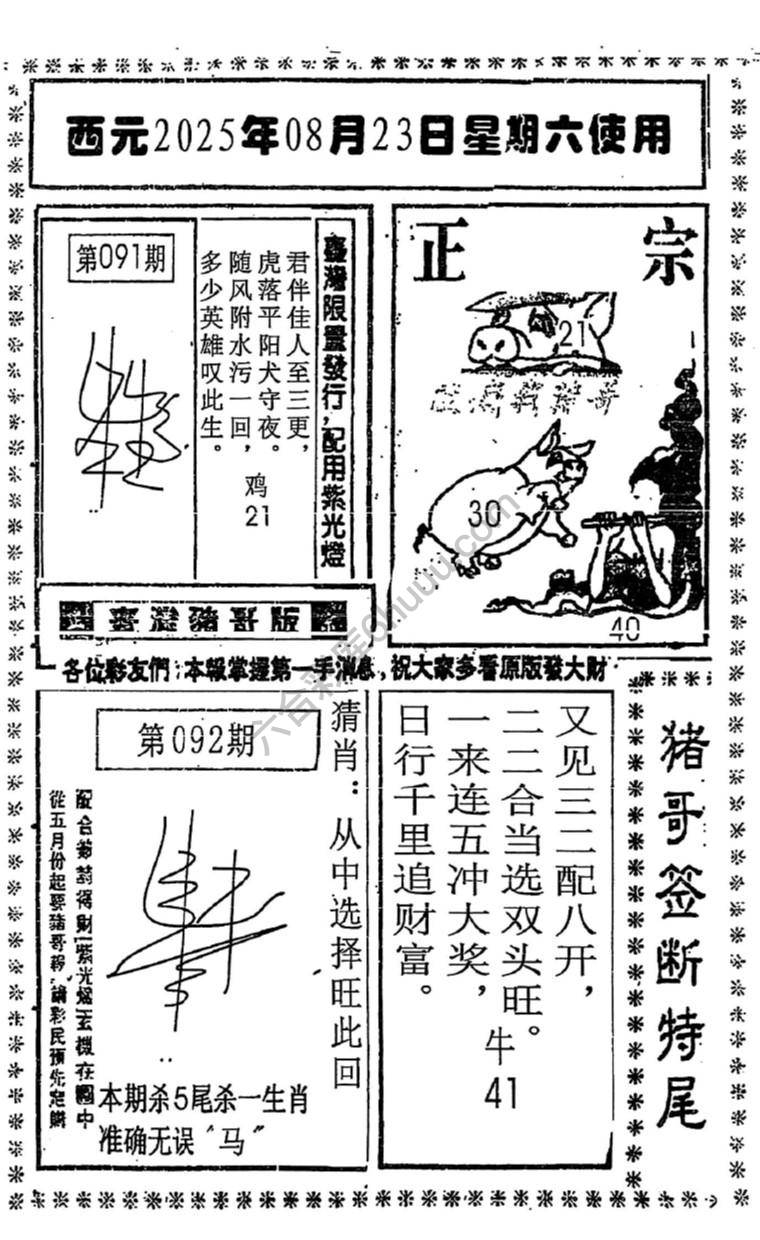 西元2025年08月23日星期六使用
第091期
君伴佳人至三更，
虎落平阳犬守夜。
随风附水污一回，
多少英雄叹此生。
鸡
21
臺灣限量發行，配用紫光燈
正宗
21
30
40
臺灣豬哥版
各位彩友們：本報掌握第一手消息，祝大家多看原版發大財
第092期
猜肖：从中选择旺此回
從五月份起要豬哥報，請彩民預先定購
本期杀5尾杀一生肖
准确无误“马”
又见三二配八开，
二二合当选双头旺。
一来连五冲大奖，
日行千里追财富。
牛
41
猪哥签断特尾
六合彩库6huuu.com